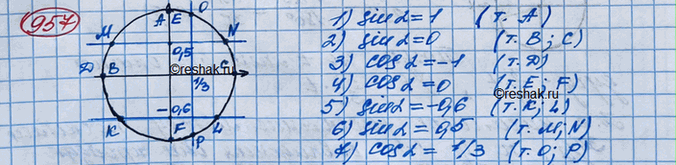 957
A E O
M N
0,5
D B C
©reshak.ru
1/3
-0,6
K L
F P
1) sin α = 1 (т. A)
2) sin α = 0 (т. B; C)
3) cos α = -1 (т. D)
4) cos α = 0 (т. E; F)
©reshak.ru
5) sin α = -0,6 (т. K; L)
6) sin α = 0,5 (т. M; N)
7) cos α = 1/3 (т. O; P)